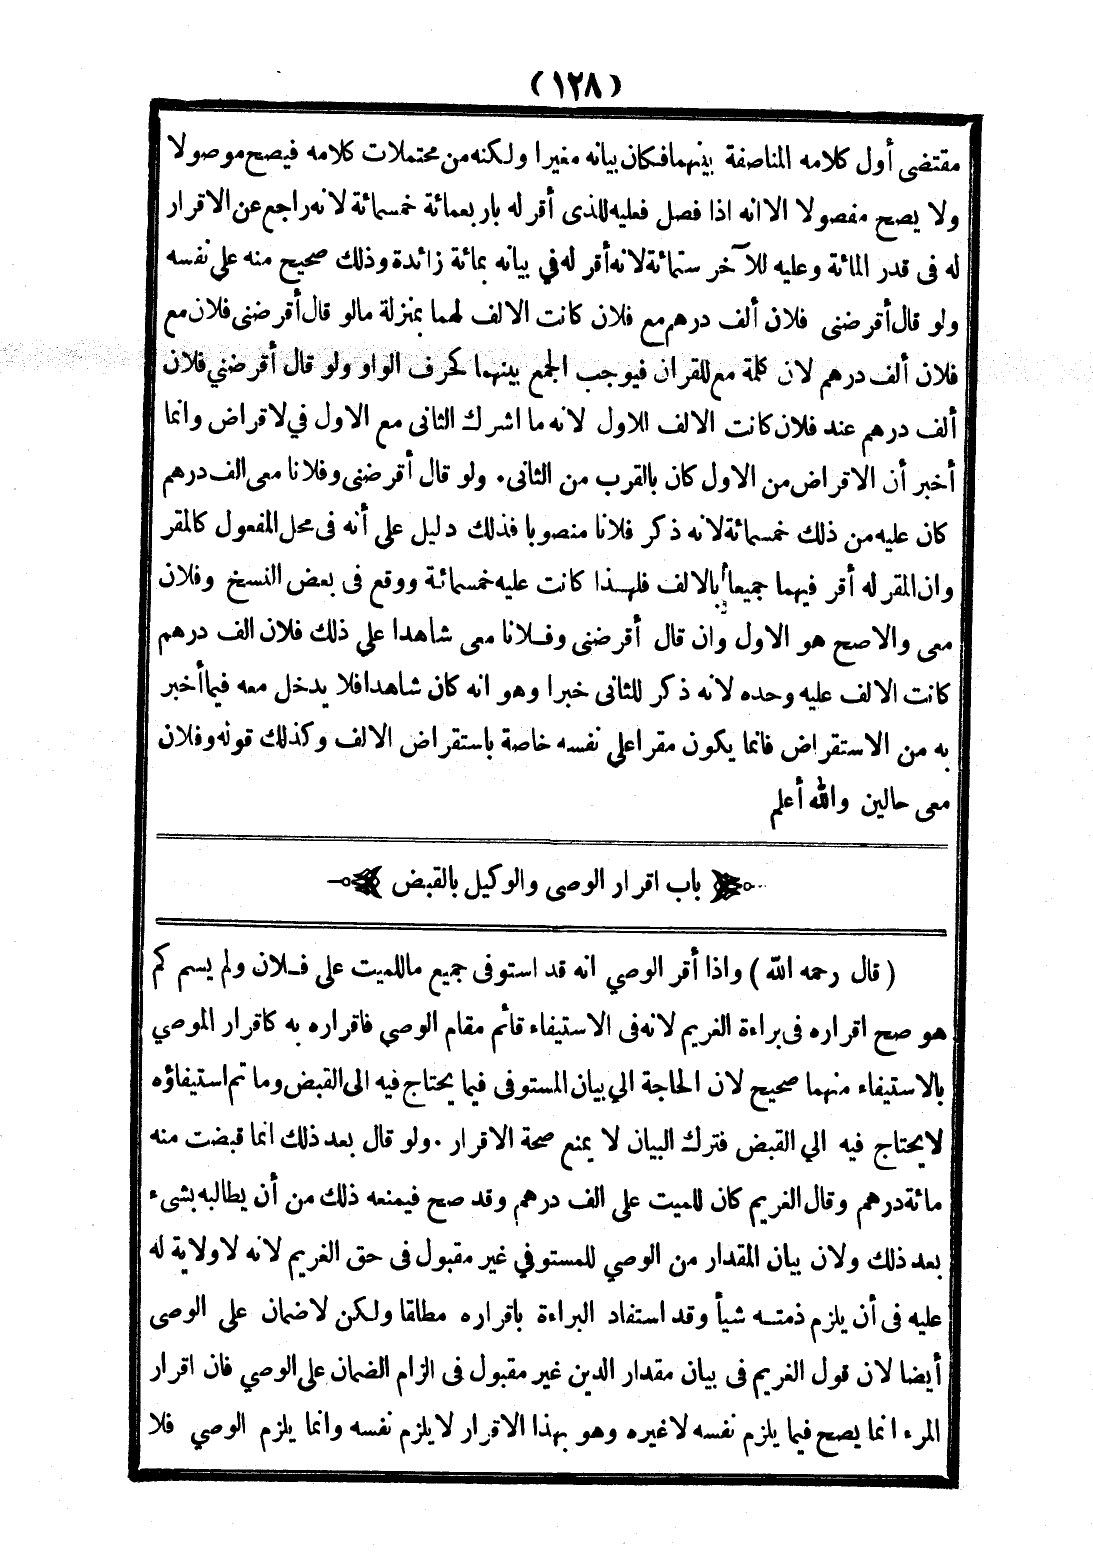 (١٢٨)
مقتضى أول كلامه المناصفة بينهما فكان بيانه مغيرا ولكنه من محتملات كلامه فيصح موصولا
ولا يصح مفصولا الا انه اذا فصل فعليه للذى أقر له باربعمائة خمسمائة لانه راجع عن الاقرار
له فى قدر المائة وعليه للآخر ستمائة لانه أقر له في بيانه بمائة زائدة وذلك صحيح منه على نفسه
ولو قال أقرضنى فلان ألف درهم مع فلان كانت الالف لهما بمنزلة مالو قال أقرضنى فلان مع
فلان ألف درهم لان كلمة مع للقران فيوجب الجمع بينهما كحرف الواو ولو قال أقرضني فلان
ألف درهم عند فلان كانت الالف للاول لانه ما اشرك الثانى مع الاول في لاقراض وانما
أخبر أن الاقراض من الاول كان بالقرب من الثانى. ولو قال أقرضنى وفلانا معى الف درهم
كان عليه من ذلك خمسمائة لانه ذكر فلانا منصوبا فذلك دليل على أنه فى محل المفعول كالمقر
وان المقر له أقر فيهما جميعا بالالف فلهذا كانت عليه خمسمائة ووقع فى بعض النسخ وفلان
معى والاصح هو الاول وان قال أقرضنى وفلانا معى شاهدا على ذلك فلان الف درهم
كانت الالف عليه وحده لانه ذكر للثانى خبرا وهو انه كان شاهدا فلا يدخل معه فيما أخبر
به من الاستقراض فانما يكون مقرا على نفسه خاصة باستقراض الالف وكذلك قوله وفلان
معى حالين والله أعلم
باب اقرار الوصى والوكيل بالقبض
(قال رحمه الله) واذا أقر الوصي انه قد استوفى جميع ماللميت على فلان ولم يسم كم
هو صح اقراره فى براءة الغريم لانه فى الاستيفاء قائم مقام الوصي فاقراره به كاقرار الموصي
بالاستيفاء منهما صحيح لان الحاجة الي بيان المستوفى فيما يحتاج فيه الى القبض وما تم استيفاؤه
لايحتاج فيه الي القبض فترك البيان لا يمنع صحة الاقرار. ولو قال بعد ذلك انما قبضت منه
مائة درهم وقال الغريم كان للميت على الف درهم وقد صح فيمنعه ذلك من أن يطالبه بشىء
بعد ذلك ولان بيان المقدار من الوصي للمستوفي غير مقبول فى حق الغريم لانه لاولاية له
عليه فى أن يلزم ذمته شيأ وقد استفاد البراءة باقراره مطلقا ولكن لاضمان على الوصى
أيضا لان قول الغريم فى بيان مقدار الدين غير مقبول فى الزام الضمان على الوصي فان اقرار
المرء انما يصح فيما يلزم نفسه لاغيره وهو بهذا الاقرار لايلزم نفسه وانما يلزم الوصي فلا